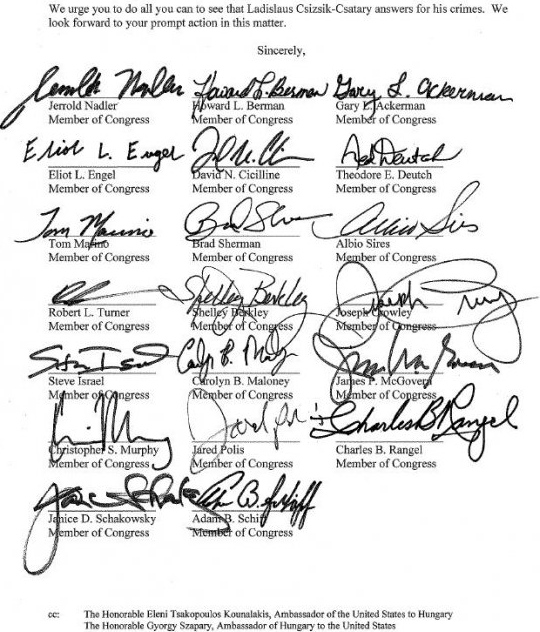 We urge you to do all you can to see that Ladislaus Csizsik-Csatary answers for his crimes. We
look forward to your prompt action in this matter.
Sincerely,
Jerrold Nadler Howard L. Berman Gary L. Ackerman
Jerrold Nadler Howard L. Berman Gary L. Ackerman
Member of Congress Member of Congress Member of Congress
Eliot L. Engel Ted Deutch
Eliot L. Engel David N. Cicilline Theodore E. Deutch
Member of Congress Member of Congress Member of Congress
Tom Marino Brad Sherman Albio Sires
Tom Marino Brad Sherman Albio Sires
Member of Congress Member of Congress Member of Congress
Shelley Berkley Joseph Crowley
Robert L. Turner Shelley Berkley Joseph Crowley
Member of Congress Member of Congress Member of Congress
Steve Israel Carolyn B. Maloney
Steve Israel Carolyn B. Maloney James P. McGovern
Member of Congress Member of Congress Member of Congress
Jared Polis Charles B Rangel
Christopher S. Murphy Jared Polis Charles B. Rangel
Member of Congress Member of Congress Member of Congress
Janice D. Schakowsky Adam B. Schiff
Member of Congress Member of Congress
cc: The Honorable Eleni Tsakopoulos Kounalakis, Ambassador of the United States to Hungary
The Honorable Gyorgy Szapary, Ambassador of Hungary to the United States